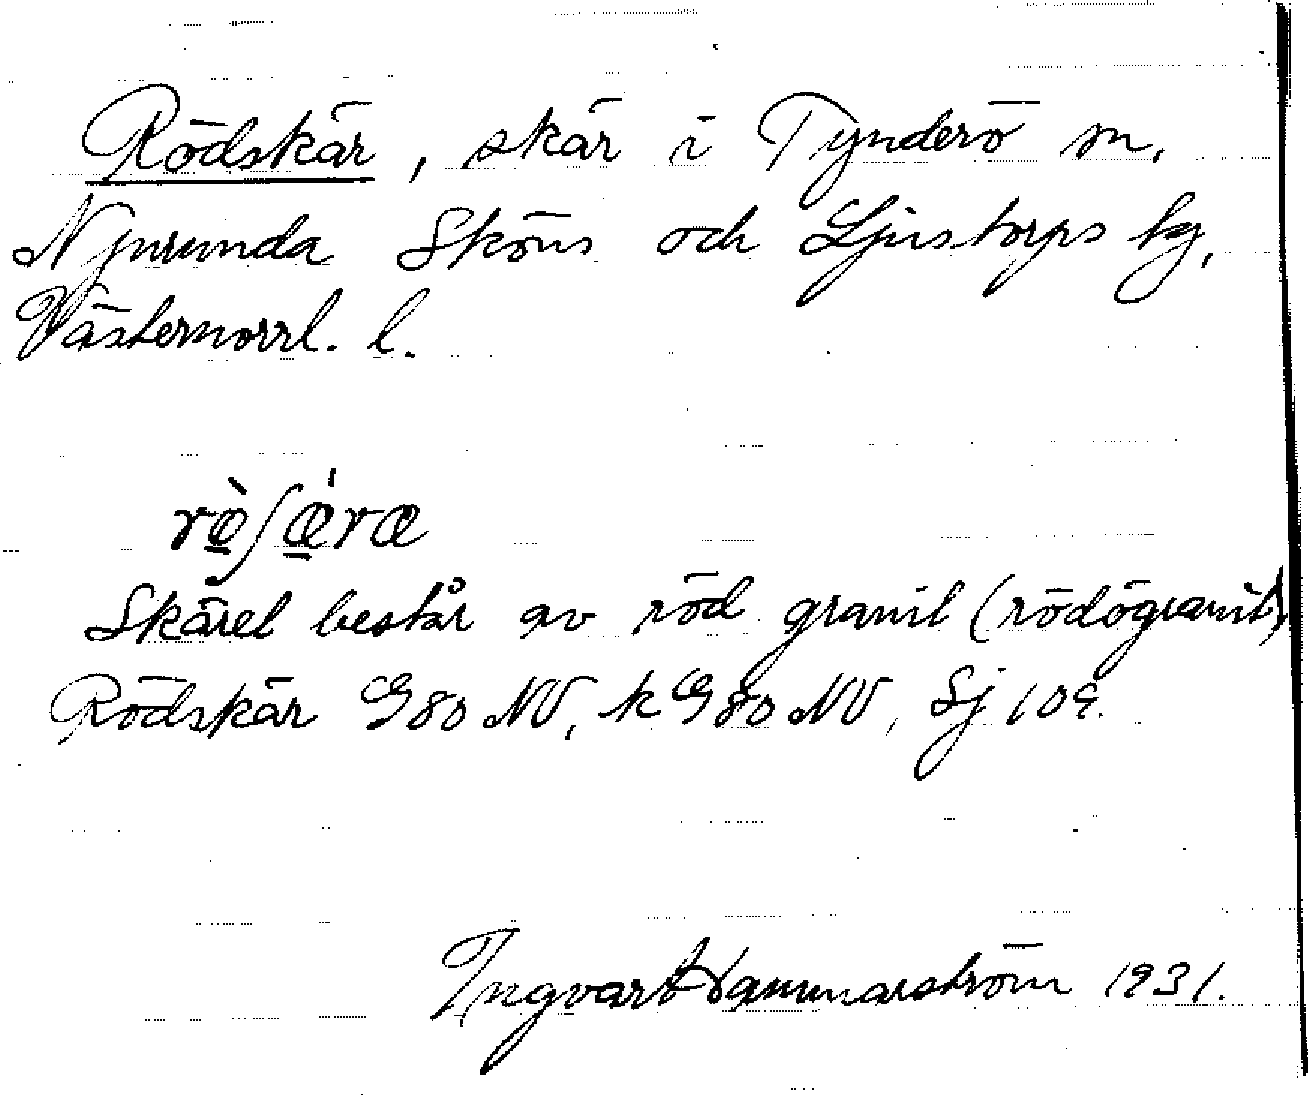 Rödskär, skär i Tynderö sn,
Njurunda Sköns och Ljustorps tg,
Västernorrl. l.
rø̀ʃæ̀ræ
Skäret består av röd granit (rödögranit).
Rödskär G80 NV, k G80 NV, Sj 109.
Ingvart Hammarström 1931.